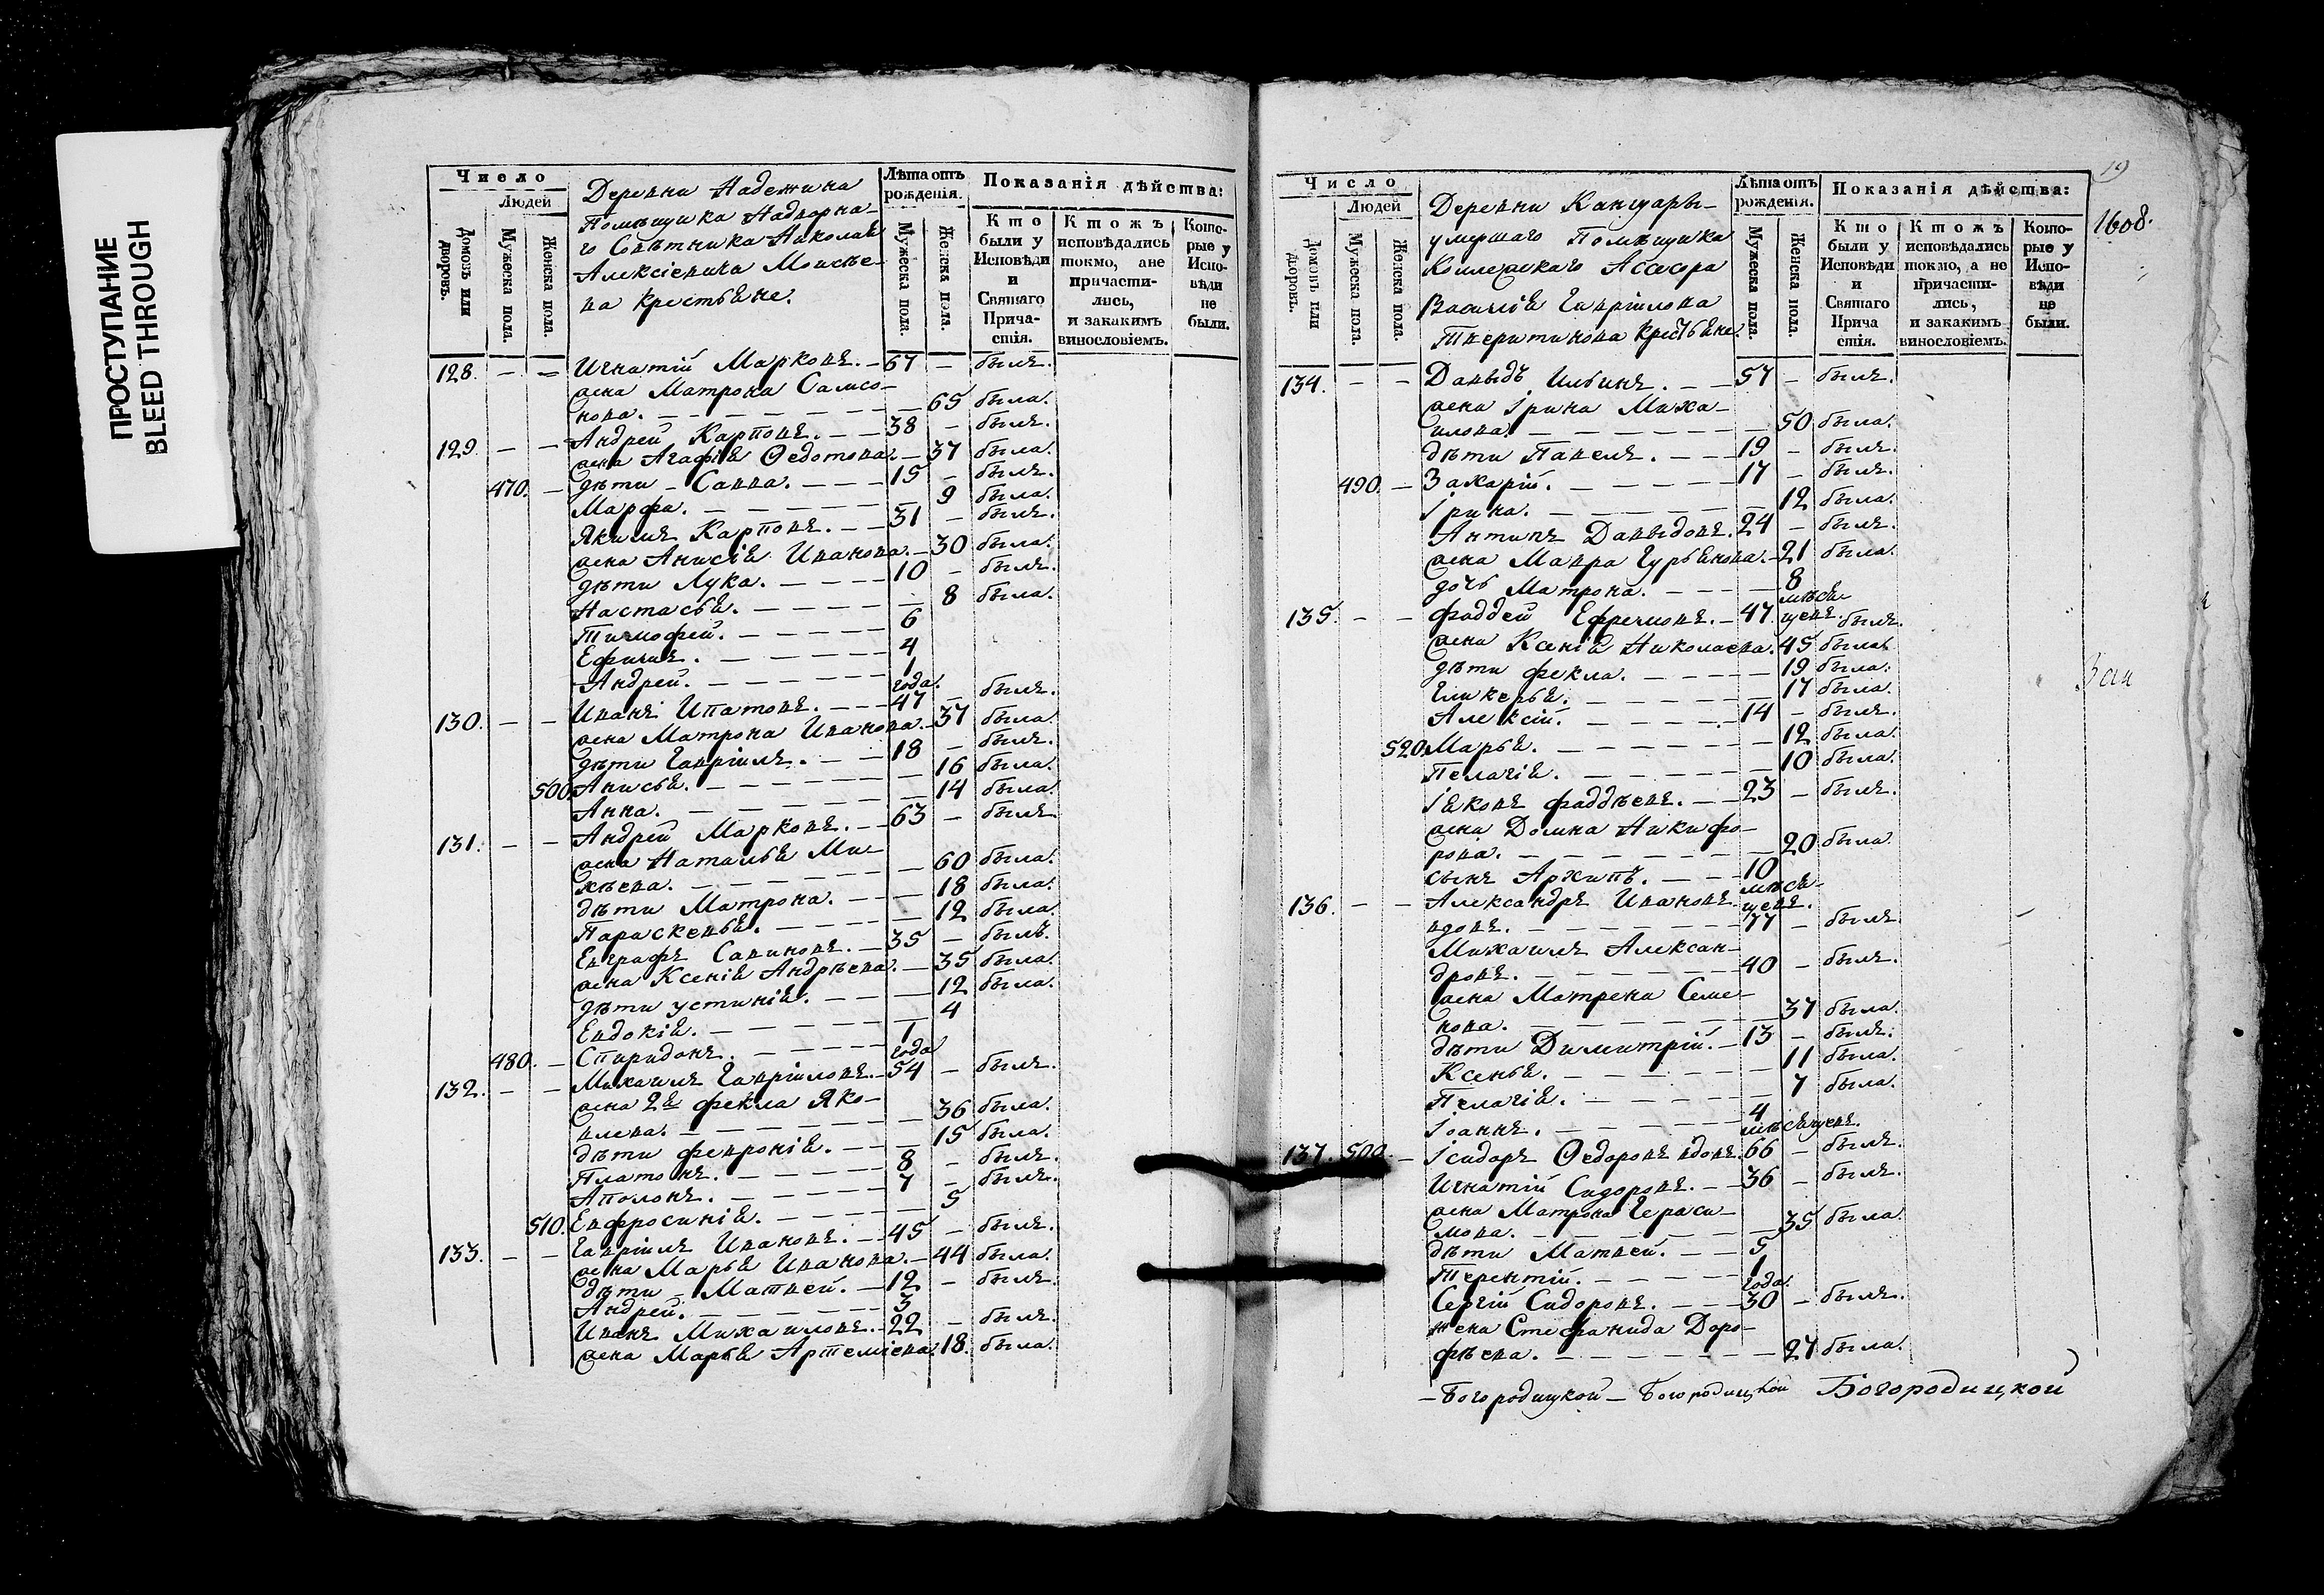 ПРОСТУПАНИЕ
BLEED THROUGH
Число
Людей
Домовъ или дворовъ.
Мужеска пола.
Женска пола.
Деревни Надежина
Помѣщика Надворна-
го Совѣтника Николая
Алексіевича Моисѣе-
ва крестьяне.
Лѣта отъ рожденія.
Мужеска пола.
Женска пола.
Показанія дѣйства:
Кто были у Исповѣди и Святаго Прича-стія.
Ктожъ исповѣдались токмо, ане причасти-лись, и закакимъ винословіемъ.
Кото-рые у Испо-вѣди не были.
128. – – Игнатій Марковъ. – 67 – былъ.
жена Матрона Самсо-
нова. – 65 была.
129. – – Андрей Карповъ. – 38 – былъ.
жена Агафія Ѳедотова. – 37 была.
470. – дѣти – Савва. – 15 – былъ.
Марфа. – 9 была.
Якимъ Карповъ. – 31 – былъ.
жена Анисія Иванова. – 30 была.
дѣти Лука. – 10 – былъ.
Настасья. – 8 была.
Тимофей. – 6
Ефимъ. – 4
Андрей. – 1 года.
130. – – Иванъ Ипатовъ. – 47 – былъ.
жена Матрона Иванова. – 37 была.
дѣти Гавріилъ. – 18 – былъ.
500. Анисья. – 16 была.
Анна. – 14 была.
131. – – Андрей Марковъ. – 63 – былъ
жена Наталья Ми-
хѣева. – 60 была.
дѣти Матрона. – 18 была.
Параскевья. – 12 была.
Евграфъ Савиновъ. – 35 – былъ.
жена Ксенія Андрѣева. – 35 была.
дѣти Устинія. – 12 была.
Евдокія. – 4
480. – Спиридонъ. – 1 года
132. – – Михаилъ Гавріиловъ. – 54 – былъ.
жена 2я Фекла Яко-
влева. – 36 была.
дѣти Февронія. – 15 была.
Платонъ. – 8 – былъ.
Аполонъ. – 7 – былъ.
510. Евфросинія. – 5
133. – – Гавріилъ Ивановъ. – 45 – былъ.
жена Марья Иванова. – 44 была.
дѣти – Матвей. – 12 – былъ.
Андрей. – 3
Иванъ Михаиловъ. – 22 – былъ.
жена Марья Артеміева. 18. была.
19
1608.
Число
Людей
Домовъ или дворовъ.
Мужеска пола.
Женска пола.
Деревни Канцары-
умершаго Помѣщика
Коллежскаго Асесора
Василія Гавріилова
Тверитинова крестьяне.
Лѣта отъ рожденія.
Мужеска пола.
Женска пола.
Показанія дѣйства:
Кто были у Исповѣди и Святаго Прича стія.
Ктожъ исповѣдались токмо, а не причасти-лись, и закакимъ винословіемъ.
Кото-рые у Испо-вѣди не были.
134. – – Давыдъ Ильинъ. – 57 – былъ.
жена Ірина Миха-
илова. – 50 была.
дѣти Павелъ. – 19 – былъ.
490. – Захарій. – 17 – былъ.
Ірина. – 12 была.
Антипъ Давыдовъ. 24 – былъ.
жена Мавра Гурьянова. – 21 была.
дочь Матрона. – 8 мѣся-цевъ.
135. – – Фаддей Ефремовъ. – 47 былъ.
жена Ксенія Николаева. 45 была
дѣти Фекла. – 19 была.
Гликерья. – 17 была.
Алексій. – 14 – былъ.
520. Марья. – 12 была.
Пелагія. – 10 была.
Іяковъ Фаддѣевъ. – 23 – былъ.
жена Домна Никифо-
рова. – 20 была
сынъ Архипъ. – 10 мѣся-цевъ.
136. – – Александръ Ивановъ
вдовъ. – 77 – былъ
Михаилъ Алексан-
дровъ. – 40 – былъ.
жена Матрена Семе-
нова. – 37 была.
дѣти Димитрій. – 13 – былъ.
Ксенья. – 11 была.
Пелагія. – 7 была.
Іоаннъ. – 4 мѣсяцевъ.
137. 500. – Ісидоръ Ѳедоровъ вдовъ. 66 – былъ.
Игнатій Сидоровъ. – 36 – былъ.
жена Матрона Гераси-
мова. – 35 была.
дѣти Матвей. – 5
Терентій. – 1 года.
Сергій Сидоровъ. – 30 – былъ.
жена Стефанида Доро-
фѣева. – 27 была.
– Богородицкой – Богородицкой Богородицкой